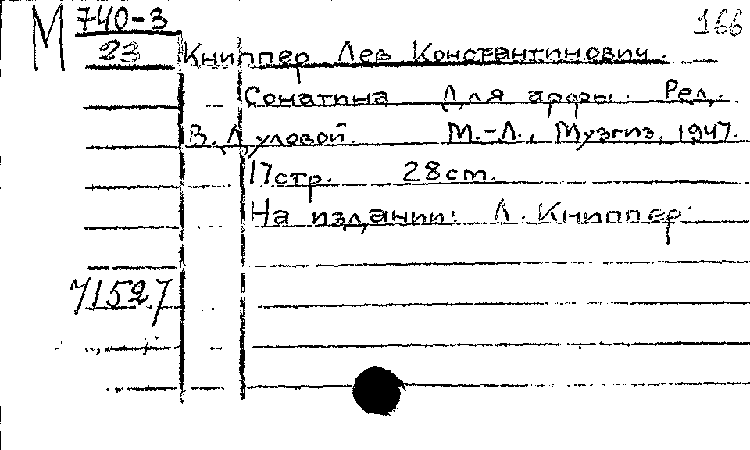 М 740-3 166
23 Книппер Лев Константинович.
Сонатина для арфы. Ред.
В. Дуловой. М.-Л., Музгиз, 1947.
17 стр. 28 cm.
На издании: Л. Книппер.
71527